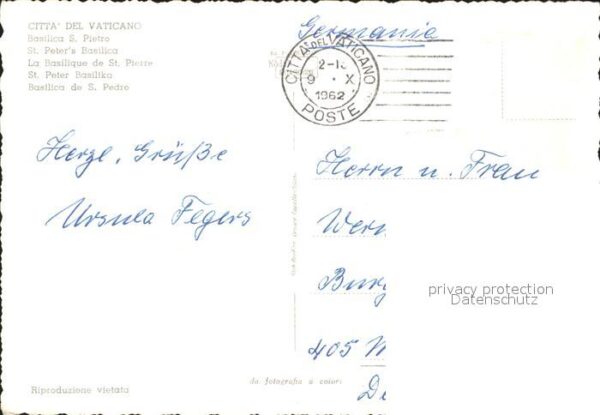 CITTA' DEL VATICANO
Basilica S. Pietro
St. Peter's Basilica
La Basilique de St. Pierre
St. Peter Basilika
Basilica de S. Pedro
Germania
CITTA' DEL VATICANO
9 · X
1962
POSTE
Herzl. Grüße
Ursula Fegers
Herrn u. Frau
Wern
Burg
405 M
De
privacy protection
Datenschutz
da fotografia a colori
Riproduzione vietata